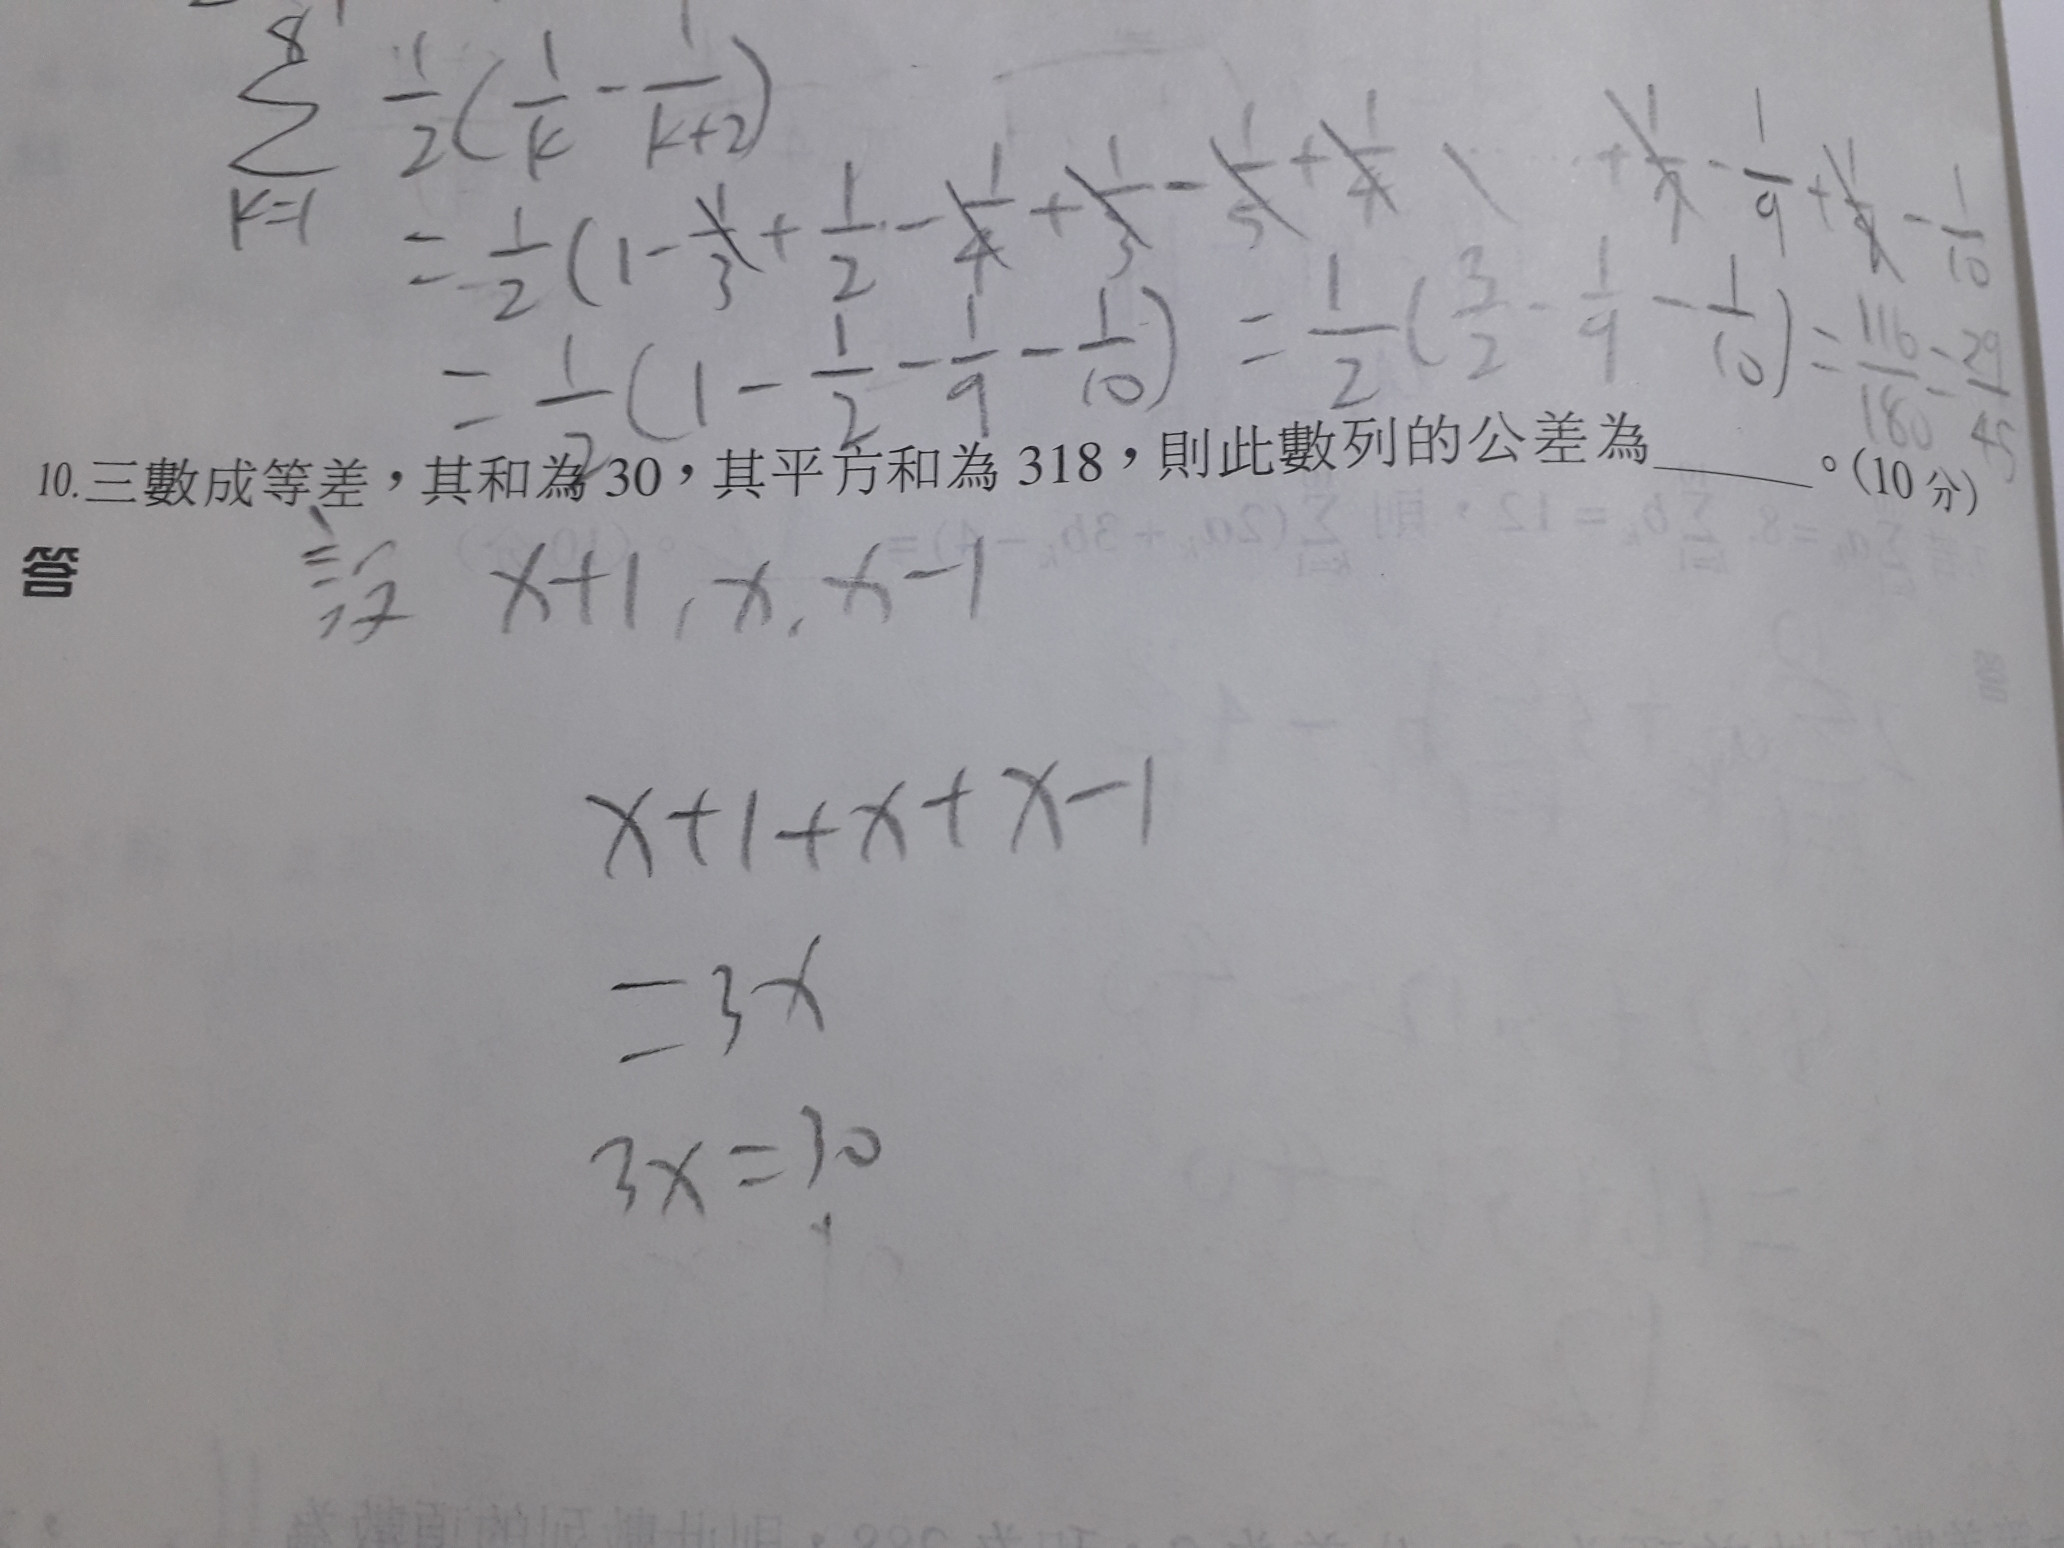 8
∑ 1/2(1/k - 1/k+2)
k=1
= 1/2(1 - 1/3 + 1/2 - 1/4 + 1/3 - 1/5 + 1/4 ...... + 1/7 - 1/9 + 1/8 - 1/10
= 1/2(1 - 1/2 - 1/9 - 1/10) = 1/2(3/2 - 1/9 - 1/10) = 116/180 = 29/45
10.三數成等差,其和為 30,其平方和為 318,則此數列的公差為______。(10 分)
答
設 x+1, x, x-1
x+1+x+x-1
=3x
3x=30